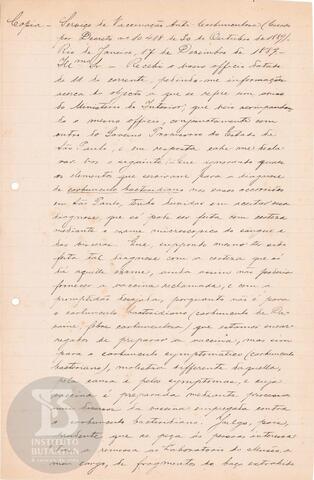 Copia - Serviço de Vaccinação Anti-Carbunculosa - (Creado
por Decreto nº 10.418 de 20 de Outubro de 1889).
Rio de Janeiro, 17 de Dezembro de 1889.-
Illmo Sr. - Recebi o vosso officio datado
de 11 do corrente, pedindo-me informações
acerca do objecto a que se refere um aviso
do Ministerio do Interior, que veio acompanhando
o mesmo officio, conjunctamente com
outro do Governo Provisorio do Estado de
São Paulo, e em resposta cabe-me declarar-
vos o seguinte: Que ignorando quaes
os elementos que serviram para a diagnose
de carbunculo bacteridiano nos casos occorridos
em São Paulo, tenho duvidas em aceitar essa
diagnose que só póde ser feita com certeza
mediante o exame microscopico do sangue e
das visceras. Que, suppondo mesmo ter sido
feita tal diagnose com a certeza que só
dá aquelle exame, ainda assim não poderia
fornecer a vaccina reclamada, e com a
promptidão desejada, porquanto não é para
o carbunculo bacteridiano (carbunculo de Davaine,
febre carbunculosa) que estamos encarregados
de preparar a vaccina, mas sim
para o carbunculo symptomatico (carbunculo
bacteriano), molestia differente daquella,
pela causa e pelos symptomas, e cuja
vaccina é preparada mediante processo
mui diverso da vaccina empregada contra
o carbunculo bacteridiano. Julgo, pois,
prudente, que se peça ás pessoas interessadas
a remessa ao Laboratorio da direcção a
meu cargo, de fragmentos do baço extrahido
INSTITUTO
BUTANTAN